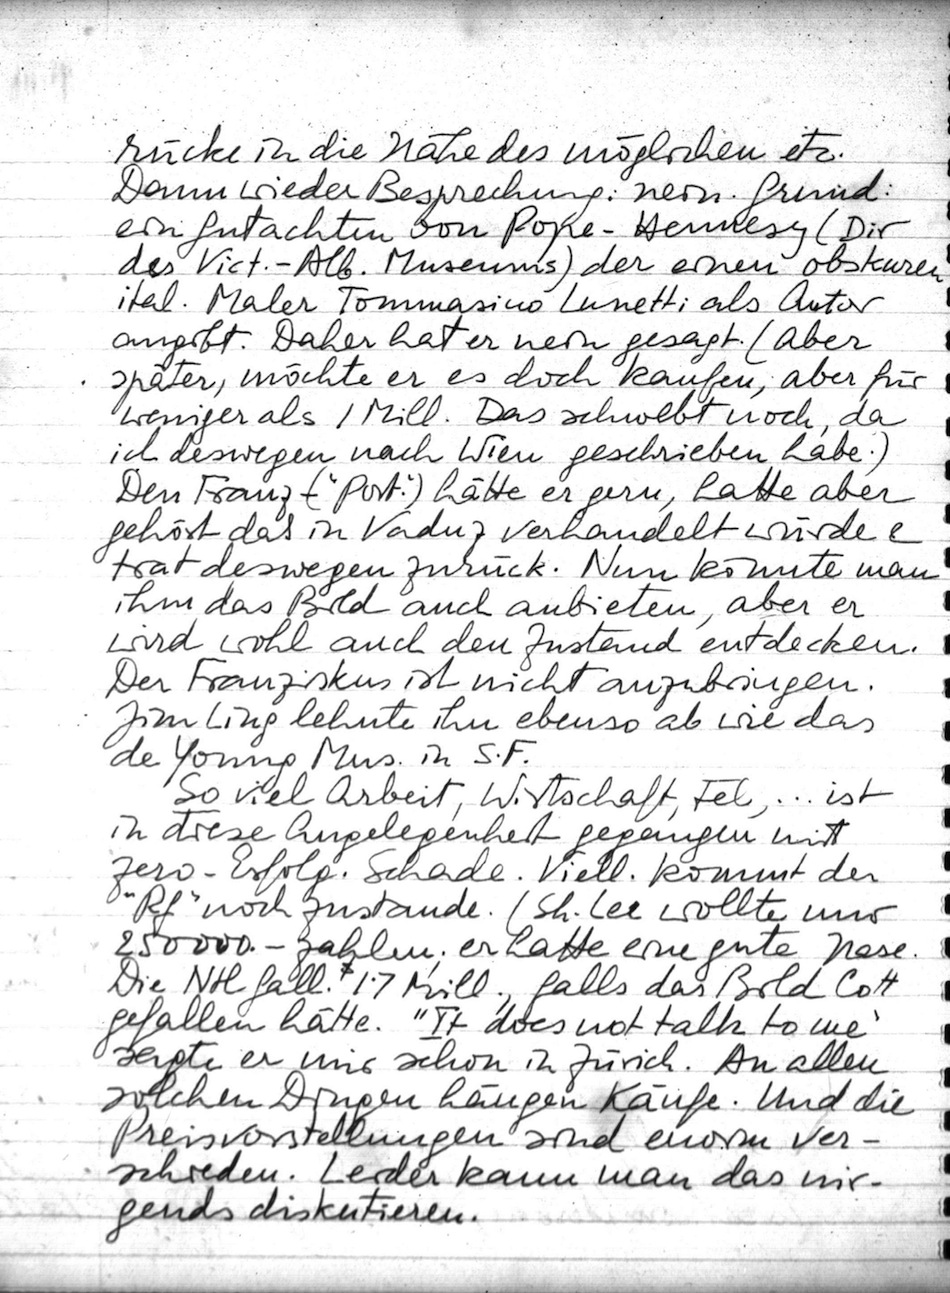 rücke in die Nähe des möglichen etc.
Dann wieder Besprechung: nein. Grund:
ein Gutachten von Pope-Hennesy (Dir
des Vict.-Alb. Museums) der einen obskuren
ital. Maler Tommasino Lunetti als Autor
angibt. Daher hat er nein gesagt. (Aber
später, möchte er es doch kaufen, aber für
weniger als 1 Mill. Das schwebt noch, da
ich deswegen nach Wien geschrieben habe.)
Den Franz-("Port.") hätte er gern, hatte aber
gehört das in Vaduz verhandelt würde &
trat deswegen zurück. Nun könnte man
ihm das Bild auch anbieten, aber er
wird wohl auch den Zustand entdecken.
Der Franziskus ist nicht anzubringen.
Jim Ling lehnte ihn ebenso ab wie das
de Young Mus. in S.F.
So viel Arbeit, Wirtschaft, Tel, ... ist
in diese Angelegenheit gegangen mit
zero-Erfolg. Schade. Viell. kommt der
"Rf" noch zustande. (Sh. Lee wollte nur
250000.- zahlen, er hatte eine gute Nase.
Die Ntl Gall. $ 1.7 Mill., falls das Bild Cott
gefallen hätte. "It does not talk to me"
sagte er mir schon in Zürich. An allen
solchen Dingen hängen Käufe. Und die
Preisvorstellungen sind enorm ver-
schieden. Leider kann man das nir-
gends diskutieren.